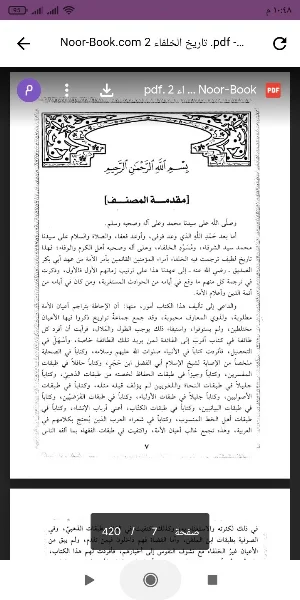 ١٠:٤٨ م
Noor-Book.com تاريخ الخلفاء 2 .pdf -...
Noor-Book ... اء 2 .pdf
PDF
P
بسم الله الرحمن الرحيم
[مقدمة المصنف]
وصلَّى الله على سيدنا محمد وعلى آله وصحبه وسلم.
أما بعد حَمْدِ اللَّهِ الذي وعد فوفى، وأوعد فعفا، والصلاة والسلام على سيدنا
محمد سيد الشرفاء، ومُسَوَّد الخلفاء، وعلى آله وصحبه أهل الكرم والوفاء؛ فهذا
تاريخ لطيف ترجمت فيه الخلفاء أمراء المؤمنين القائمين بأمر الأمة من عهد أبي بكر
الصديق ـ رضي الله عنه ـ إلى عهدنا هذا على ترتيب زمانهم الأول فالأول، وذكرت
في ترجمة كل منهم ما وقع في أيامه من الحوادث المستغربة، ومن كان في أيامه من
أئمة الدين وأعلام الأمة.
والداعي إلى تأليف هذا الكتاب أمور: منها: أن الإحاطة بتراجم أعيان الأمة
مطلوبة، ولذوي المعارف محبوبة، وقد جمع جماعة تواريخ ذكروا فيها الأعيان
مختلطين، ولم يستوفوا، واستيفاء ذلك يوجب الطول والمَلال، فأردت أن أفرد كل
طائفة في كتاب أقرب إلى الفائدة لمن يريد تلك الطائفة خاصة، وأسهل في
التحصيل، فأفردت كتاباً في الأنبياء صلوات الله عليهم وسلامه، وكتاباً في الصحابة
ملخصاً من الإصابة لشيخ الإسلام أبي الفضل ابن حجر، وكتاباً حافلاً في طبقات
المفسرين، وكتاباً وجيزاً في طبقات الحفاظ لخصته من طبقات الذهبي، وكتاباً
جليلاً في طبقات النحاة واللغويين لم يؤلف قبله مثله، وكتاباً في طبقات
الأصوليين، وكتاباً جليلاً في طبقات الأولياء، وكتاباً في طبقات الفرضيين، وكتاباً
في طبقات البيانيين، وكتاباً في طبقات الكتّاب، أعني أرباب الإنشاء، وكتاباً في
طبقات أهل الخط المنسوب، وكتاباً في شعراء العرب الذين يُحتج بكلامهم في
العربية، وهذه تجمع غالب أعيان الأمة، واكتفيت في طبقات الفقهاء بما ألفه الناس
٧
في ذلك لكثرته والاستغناء
صفحة 7 / 420
الأعيان غير الخلفاء مع تشوق النفوس إلى أخبارهم، فأفردت لهم هذا الكتاب،